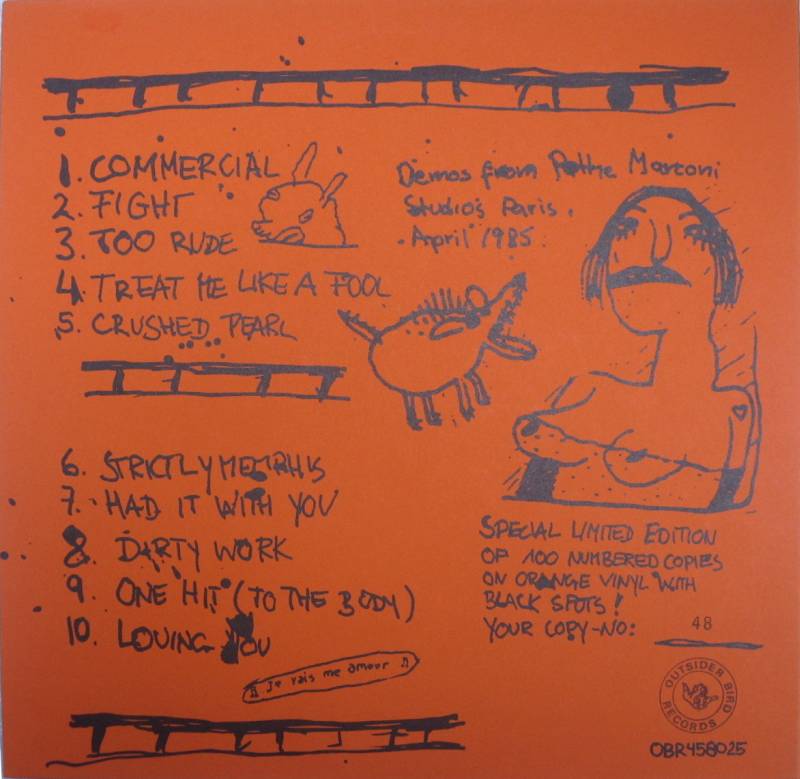 1. COMMERCIAL
2. FIGHT
3. TOO RUDE
4. TREAT ME LIKE A FOOL
5. CRUSHED PEARL
Demos from Pathe Marconi
Studios Paris.
April 1985
6. STRICTLY MEMPHIS
7. HAD IT WITH YOU
8. DIRTY WORK
9. ONE HIT (TO THE BODY)
10. LOVING YOU
♫ Je vais me amour ♫
SPECIAL LIMITED EDITION
OF 100 NUMBERED COPIES
ON ORANGE VINYL WITH
BLACK SPOTS!
YOUR COPY-NO: 48
OUTSIDER BIRD RECORDS
OBR458025